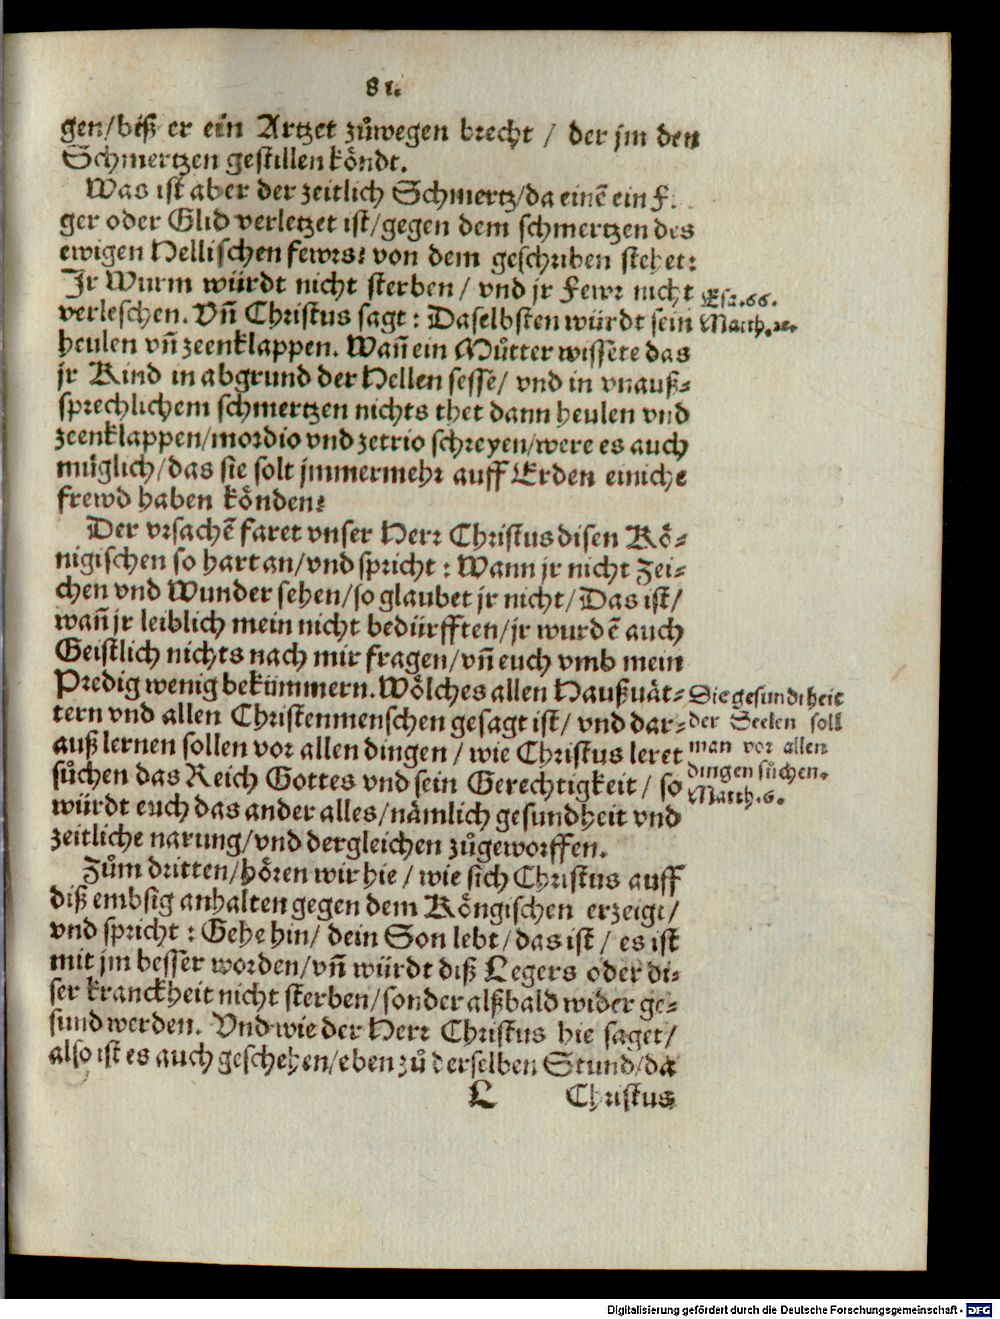 81.
gen/biß er ein Artzet zůwegen brecht / der jm den
Schmertzen gestillen köndt.
Was ist aber der zeitlich Schmertz/da einē ein
ger oder Glid verletzet ist/gegen dem schmertzen des
ewigen Hellischen fewrs? von dem geschriben stehet:
Jr Wurm würdt nicht sterben / vnd jr Fewr nicht
verleschen. Vñ Christus sagt: Daselbsten würdt sein
heulen vñ zeenklappen. Wañ ein Můtter wissete das
jr Kind in abgrund der Hellen sesse/ vnd in vnauß-
sprechlichem schmertzen nichts thet dann heulen vnd
zeenklappen/mordio vnd zetrio schreyen/were es auch
müglich/das sie solt jmmermehr auff Erden einiche
frewd haben könden?
Der vrsachē faret vnser Herr Christus disen Kö-
nigischen so hart an/vnd spricht: Wann jr nicht Zei-
chen vnd Wunder sehen/so glaubet jr nicht/Das ist/
wañ jr leiblich mein nicht bedürfften/jr wurdē auch
Geistlich nichts nach mir fragen/vñ euch vmb mein
Predig wenig bekümmern. Wölches allen Haußuät-
tern vnd allen Christenmenschen gesagt ist/ vnd dar-
auß lernen sollen vor allen dingen / wie Christus leret
sůchen das Reich Gottes vnd sein Gerechtigkeit / so
würdt euch das ander alles/nämlich gesundheit vnd
zeitliche narung/vnd dergleichen zůgeworffen.
Zům dritten/hören wir hie / wie sich Christus auff
diß embsig anhalten gegen dem Köngischen erzeigt/
vnd spricht: Gehe hin/ dein Son lebt/das ist / es ist
mit jm besser worden/vñ würdt diß Legers oder di-
ser kranckheit nicht sterben/sonder alßbald wider ge-
sund werden. Vnd wie der Herr Christus hie saget/
also ist es auch geschehen/eben zů derselben Stund/da
L Christus
Esa.66.
Matth.
Die gesundtheit
der Seelen soll
man vor allen
dingen sůchen.
Matth.6.
Digitalisierung gefördert durch die Deutsche Forschungsgemeinschaft - DFG